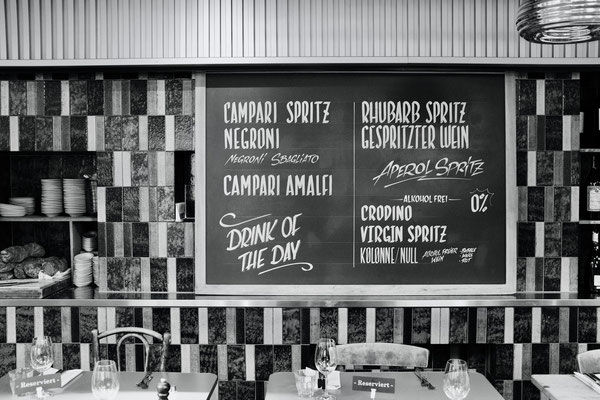 CAMPARI SPRITZ
NEGRONI
NEGRONI SBAGLIATO
CAMPARI AMALFI
DRINK OF
THE DAY
RHUBARB SPRITZ
GESPRITZTER WEIN
APEROL SPRITZ
ALKOHOL FREI
0%
CRODINO
VIRGIN SPRITZ
KOLONNE/NULL
ALKOHOL FREIER
WEIN
- ROT
- Reserviert -
- Reserviert -